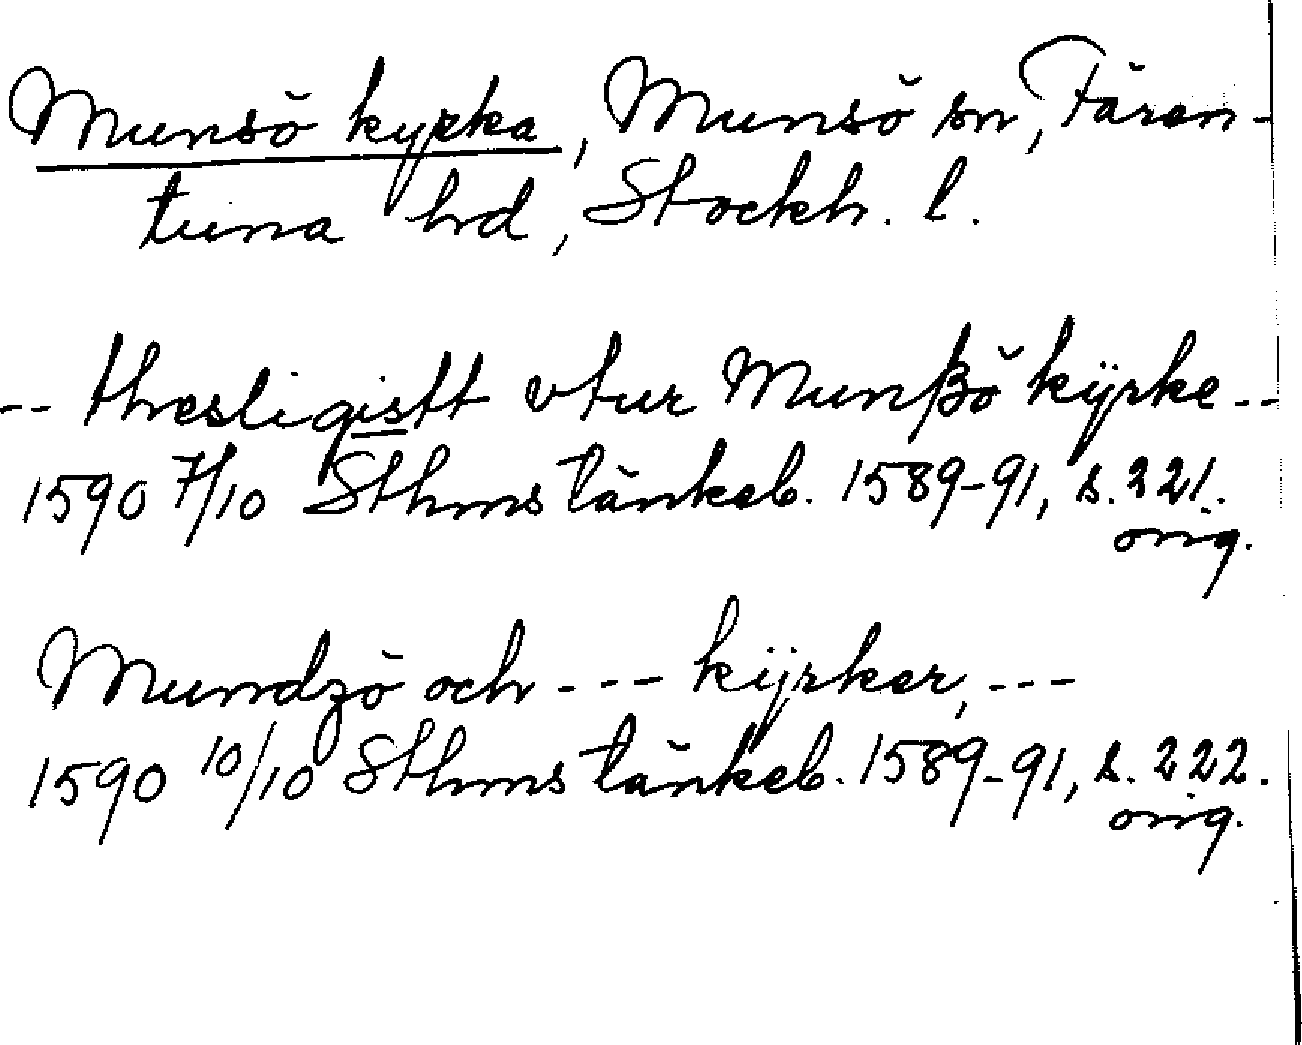 Munsö kyrka, Munsö sn, Fären-
tuna hrd, Stockh. l.
-- thesligistt vtur Munßö kÿrke --
1590 7/10 Sthms tänkeb. 1589-91, s. 221.
orig.
Mundzö och --- kÿrker, ---
1590 10/10 Sthms tänkeb. 1589-91, s. 222.
orig.